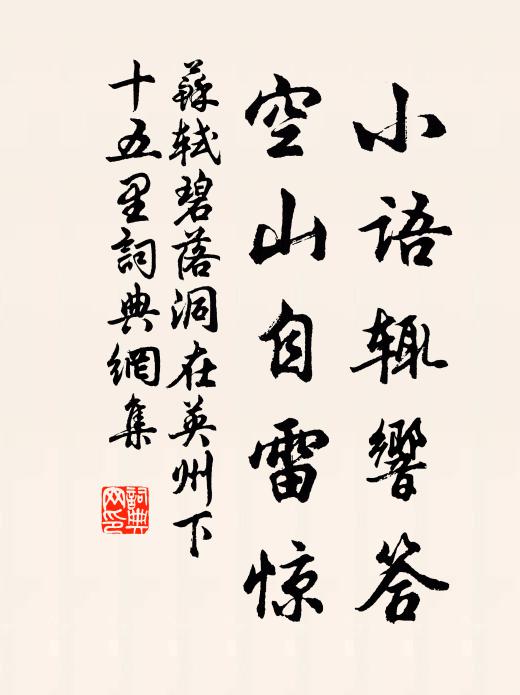 小语辄響答
空山自雷惊
蘇轼碧落洞在英州下
十五里詞典網集
詞典网印